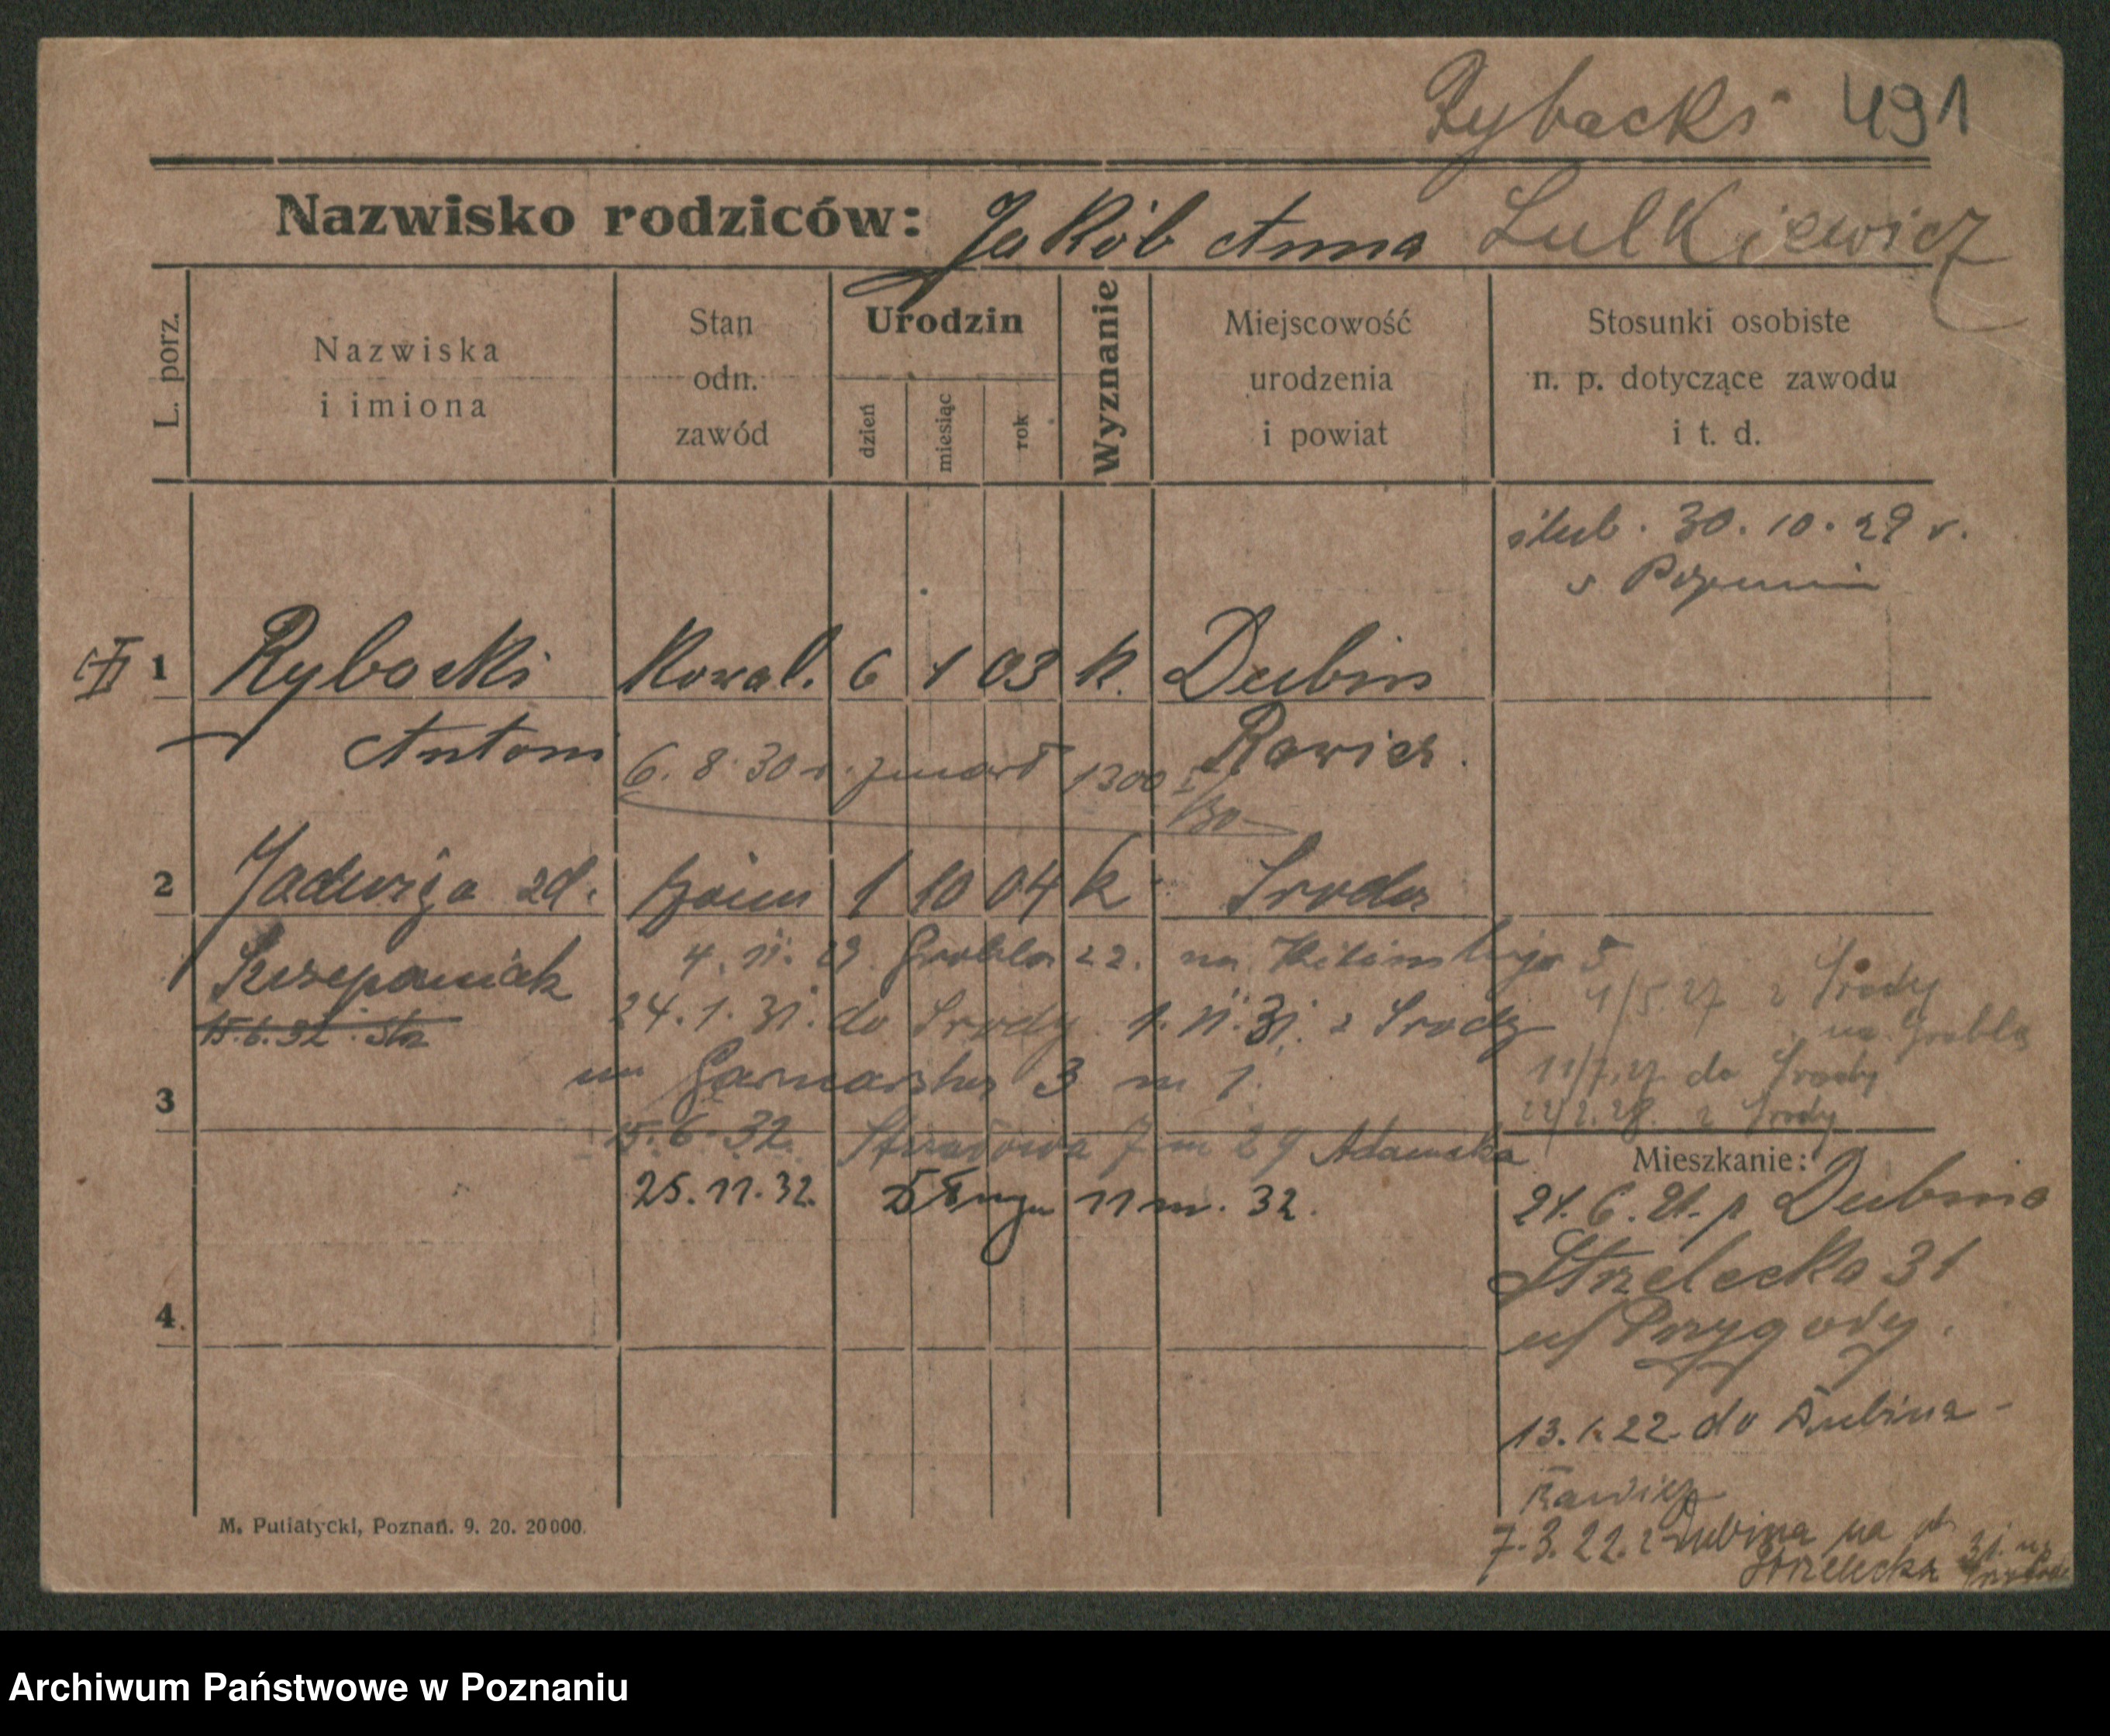 Rybacki 491
Nazwisko rodziców: Jakób Anna Lulkiewicz
L. porz.
Nazwiska
i imiona
Stan
odn.
zawód
Urodzin
dzień
miesiąc
rok
Wyznanie
Miejscowość
urodzenia
i powiat
Stosunki osobiste
n. p. dotyczące zawodu
i t. d.
ślub. 30. 10. 29 r.
w Poznaniu
1 Rybacki Kowal. 6 1 03 k. Dubin
Antoni Rawicz.
6. 8. 30 r. zmarł 1300
/30
2 Jadwiga zd. 1 10 04 k Środa
Szczepaniak
15.6.32
4. 11. 29 Grobla 22. na 5
24. 1. 31. do Środy 1. 11. 31. z Środy
na Garncarska 3 m 1.
1/5.27 z Środy
na Groblę
11/7.27 do Środy
22/2.28. z Środy
3
15. 6. 32. 7 m 29 Adamska
25. 11. 32. Długa 11 m. 32.
4.
Mieszkanie:
21. 6. 21. p Dubina
Strzelecka 31
u/ Przygody.
13. 1. 22 do Dubina -
Rawicz
7. 3. 22. z Dubina na ul.
Strzelecka 31.
M. Putiatycki, Poznań. 9. 20. 20000.
Archiwum Państwowe w Poznaniu